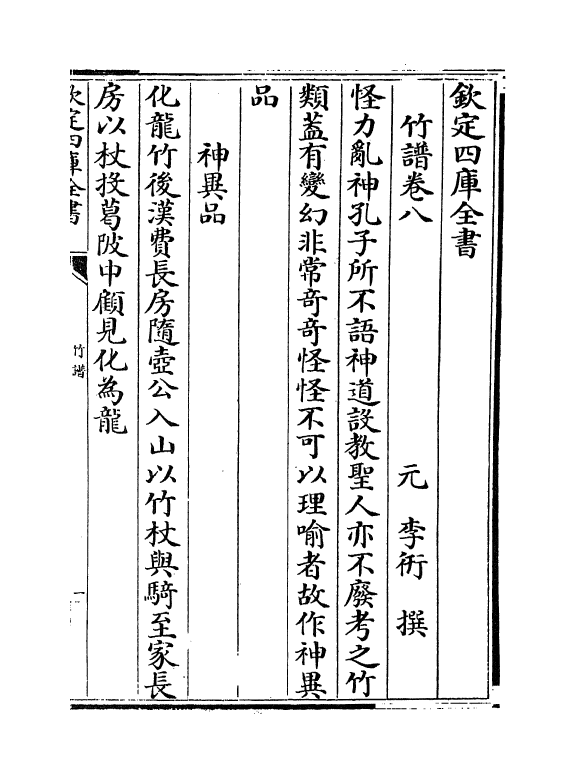 欽定四庫全書
竹譜卷八
元 李衎 撰
怪力亂神孔子所不語神道設教聖人亦不廢考之竹
類蓋有變幻非常奇奇怪怪不可以理喻者故作神異
品
神異品
化龍竹後漢費長房隨壺公入山以竹杖與騎至家長
房以杖投葛陂中顧見化為龍
欽定四庫全書
竹譜
一